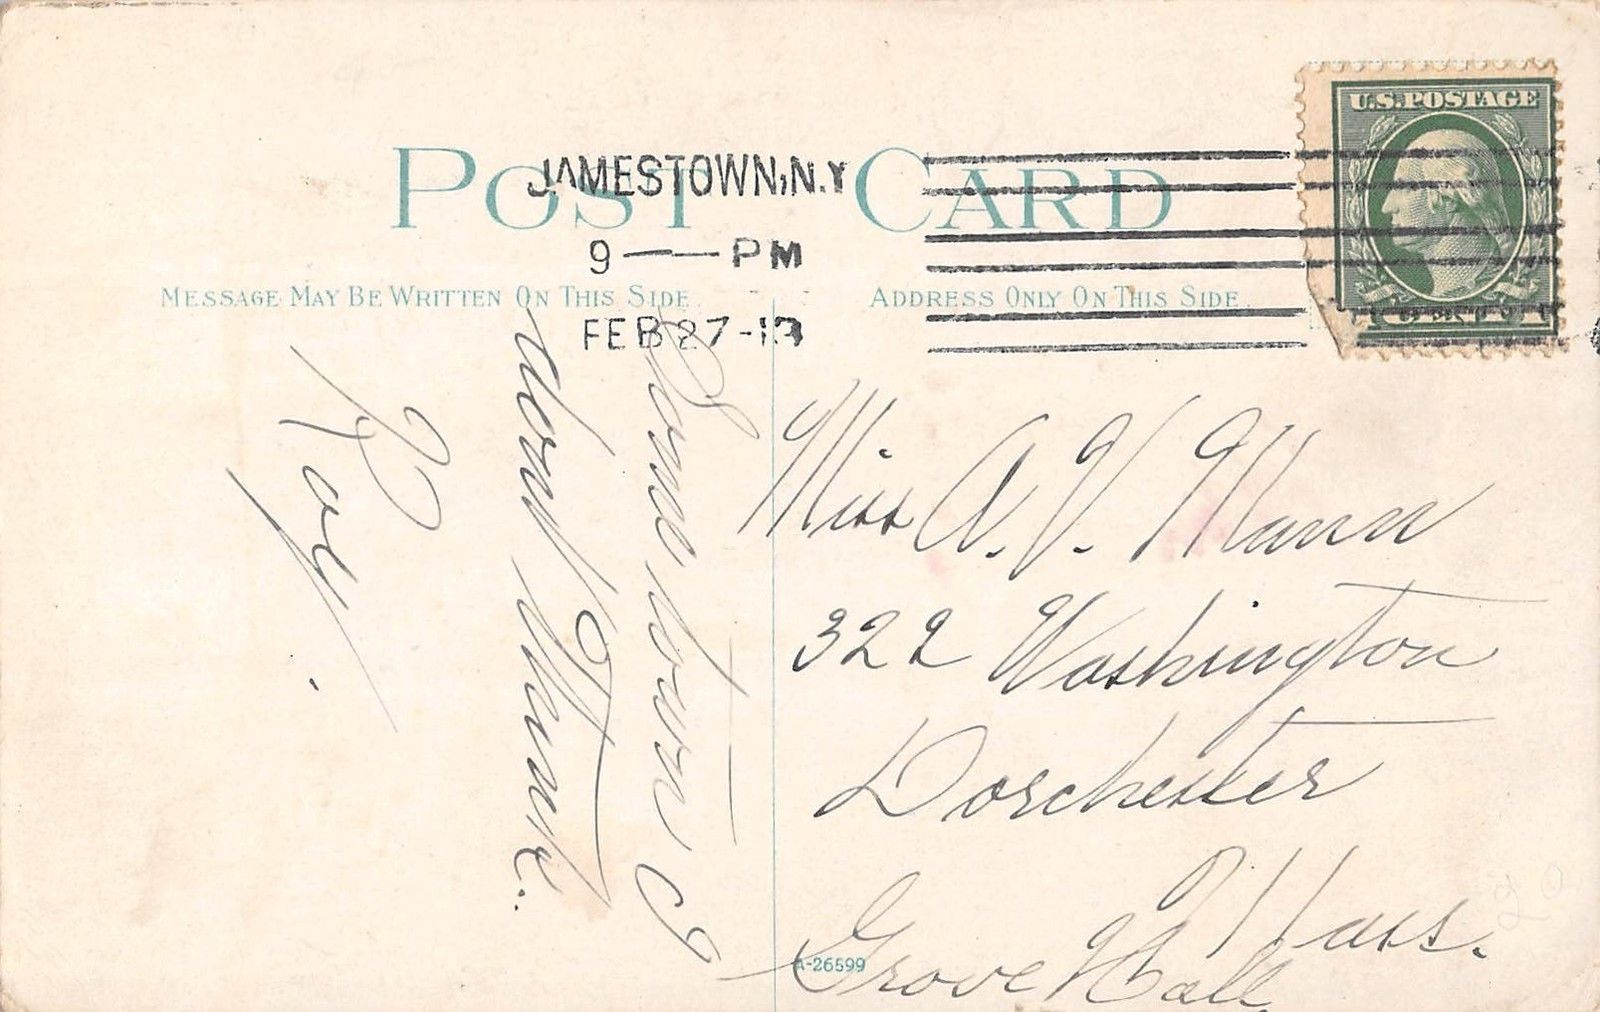 POST CARD
JAMESTOWN, N.Y
9 — PM
FEB 27-13
U.S. POSTAGE
MESSAGE MAY BE WRITTEN ON THIS SIDE.
ADDRESS ONLY ON THIS SIDE.
Some town I
dont think.
Roy.
Miss A. V. Mann
322 Washington
Dorchester
Mass.
Grove Hall
A-26599
20